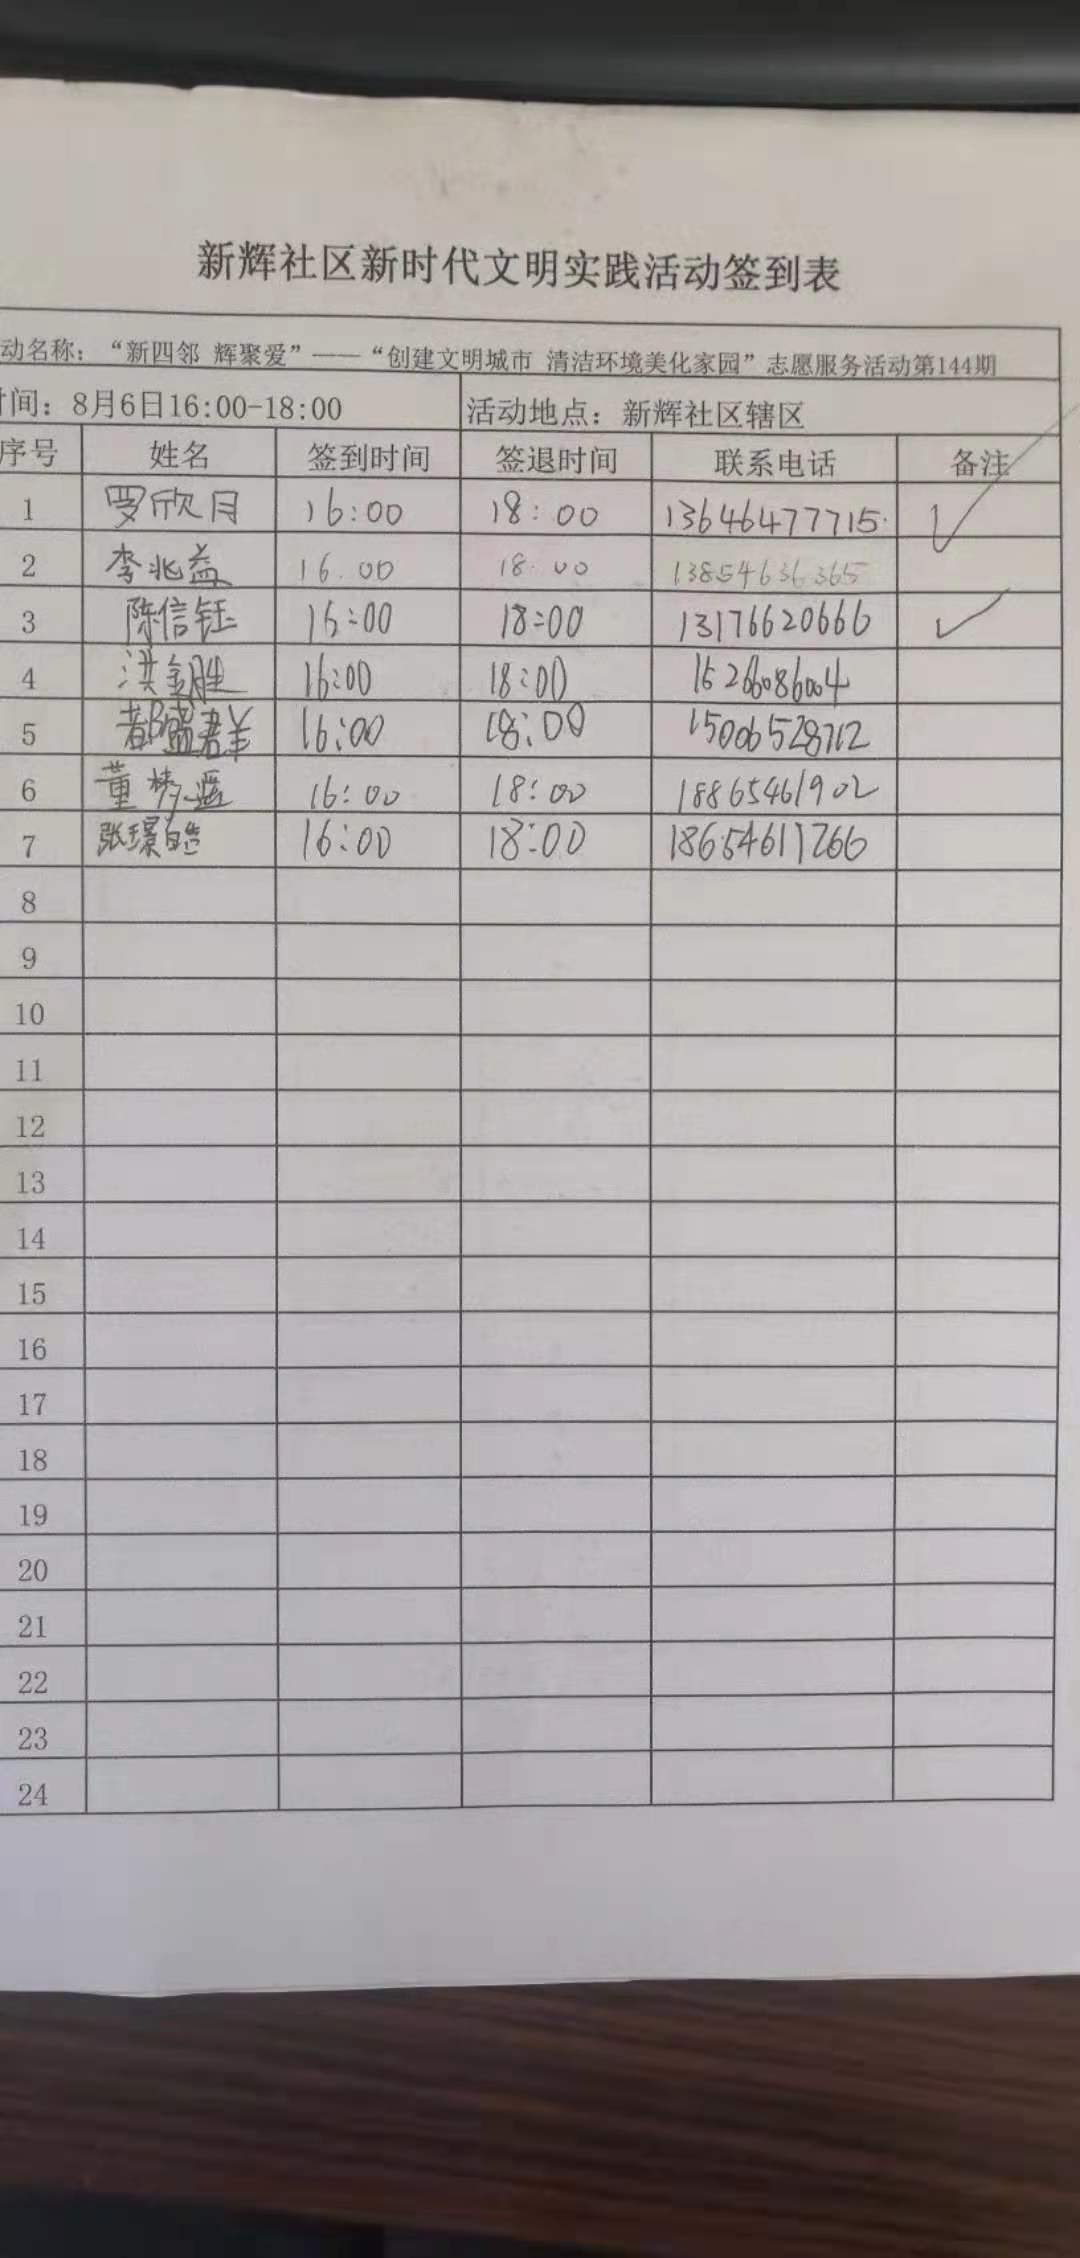 新辉社区新时代文明实践活动签到表
动名称：“新四邻 辉聚爱”——“创建文明城市 清洁环境美化家园”志愿服务活动第144期
时间：8月6日16:00-18:00 活动地点：新辉社区辖区
序号 姓名 签到时间 签退时间 联系电话 备注
1 罗欣月 16:00 18:00 13646477715 ✓
2 李兆益 16.00 18.00 13854636365
3 陈信钰 16:00 18:00 13176620666 ✓
4 洪 胜 16:00 18:00
5 都盛群 16:00 18:00
6 董梦遥 16:00 18:00 18865461902
7 张璟皓 16:00 18:00 18654617266
8
9
10
11
12
13
14
15
16
17
18
19
20
21
22
23
24